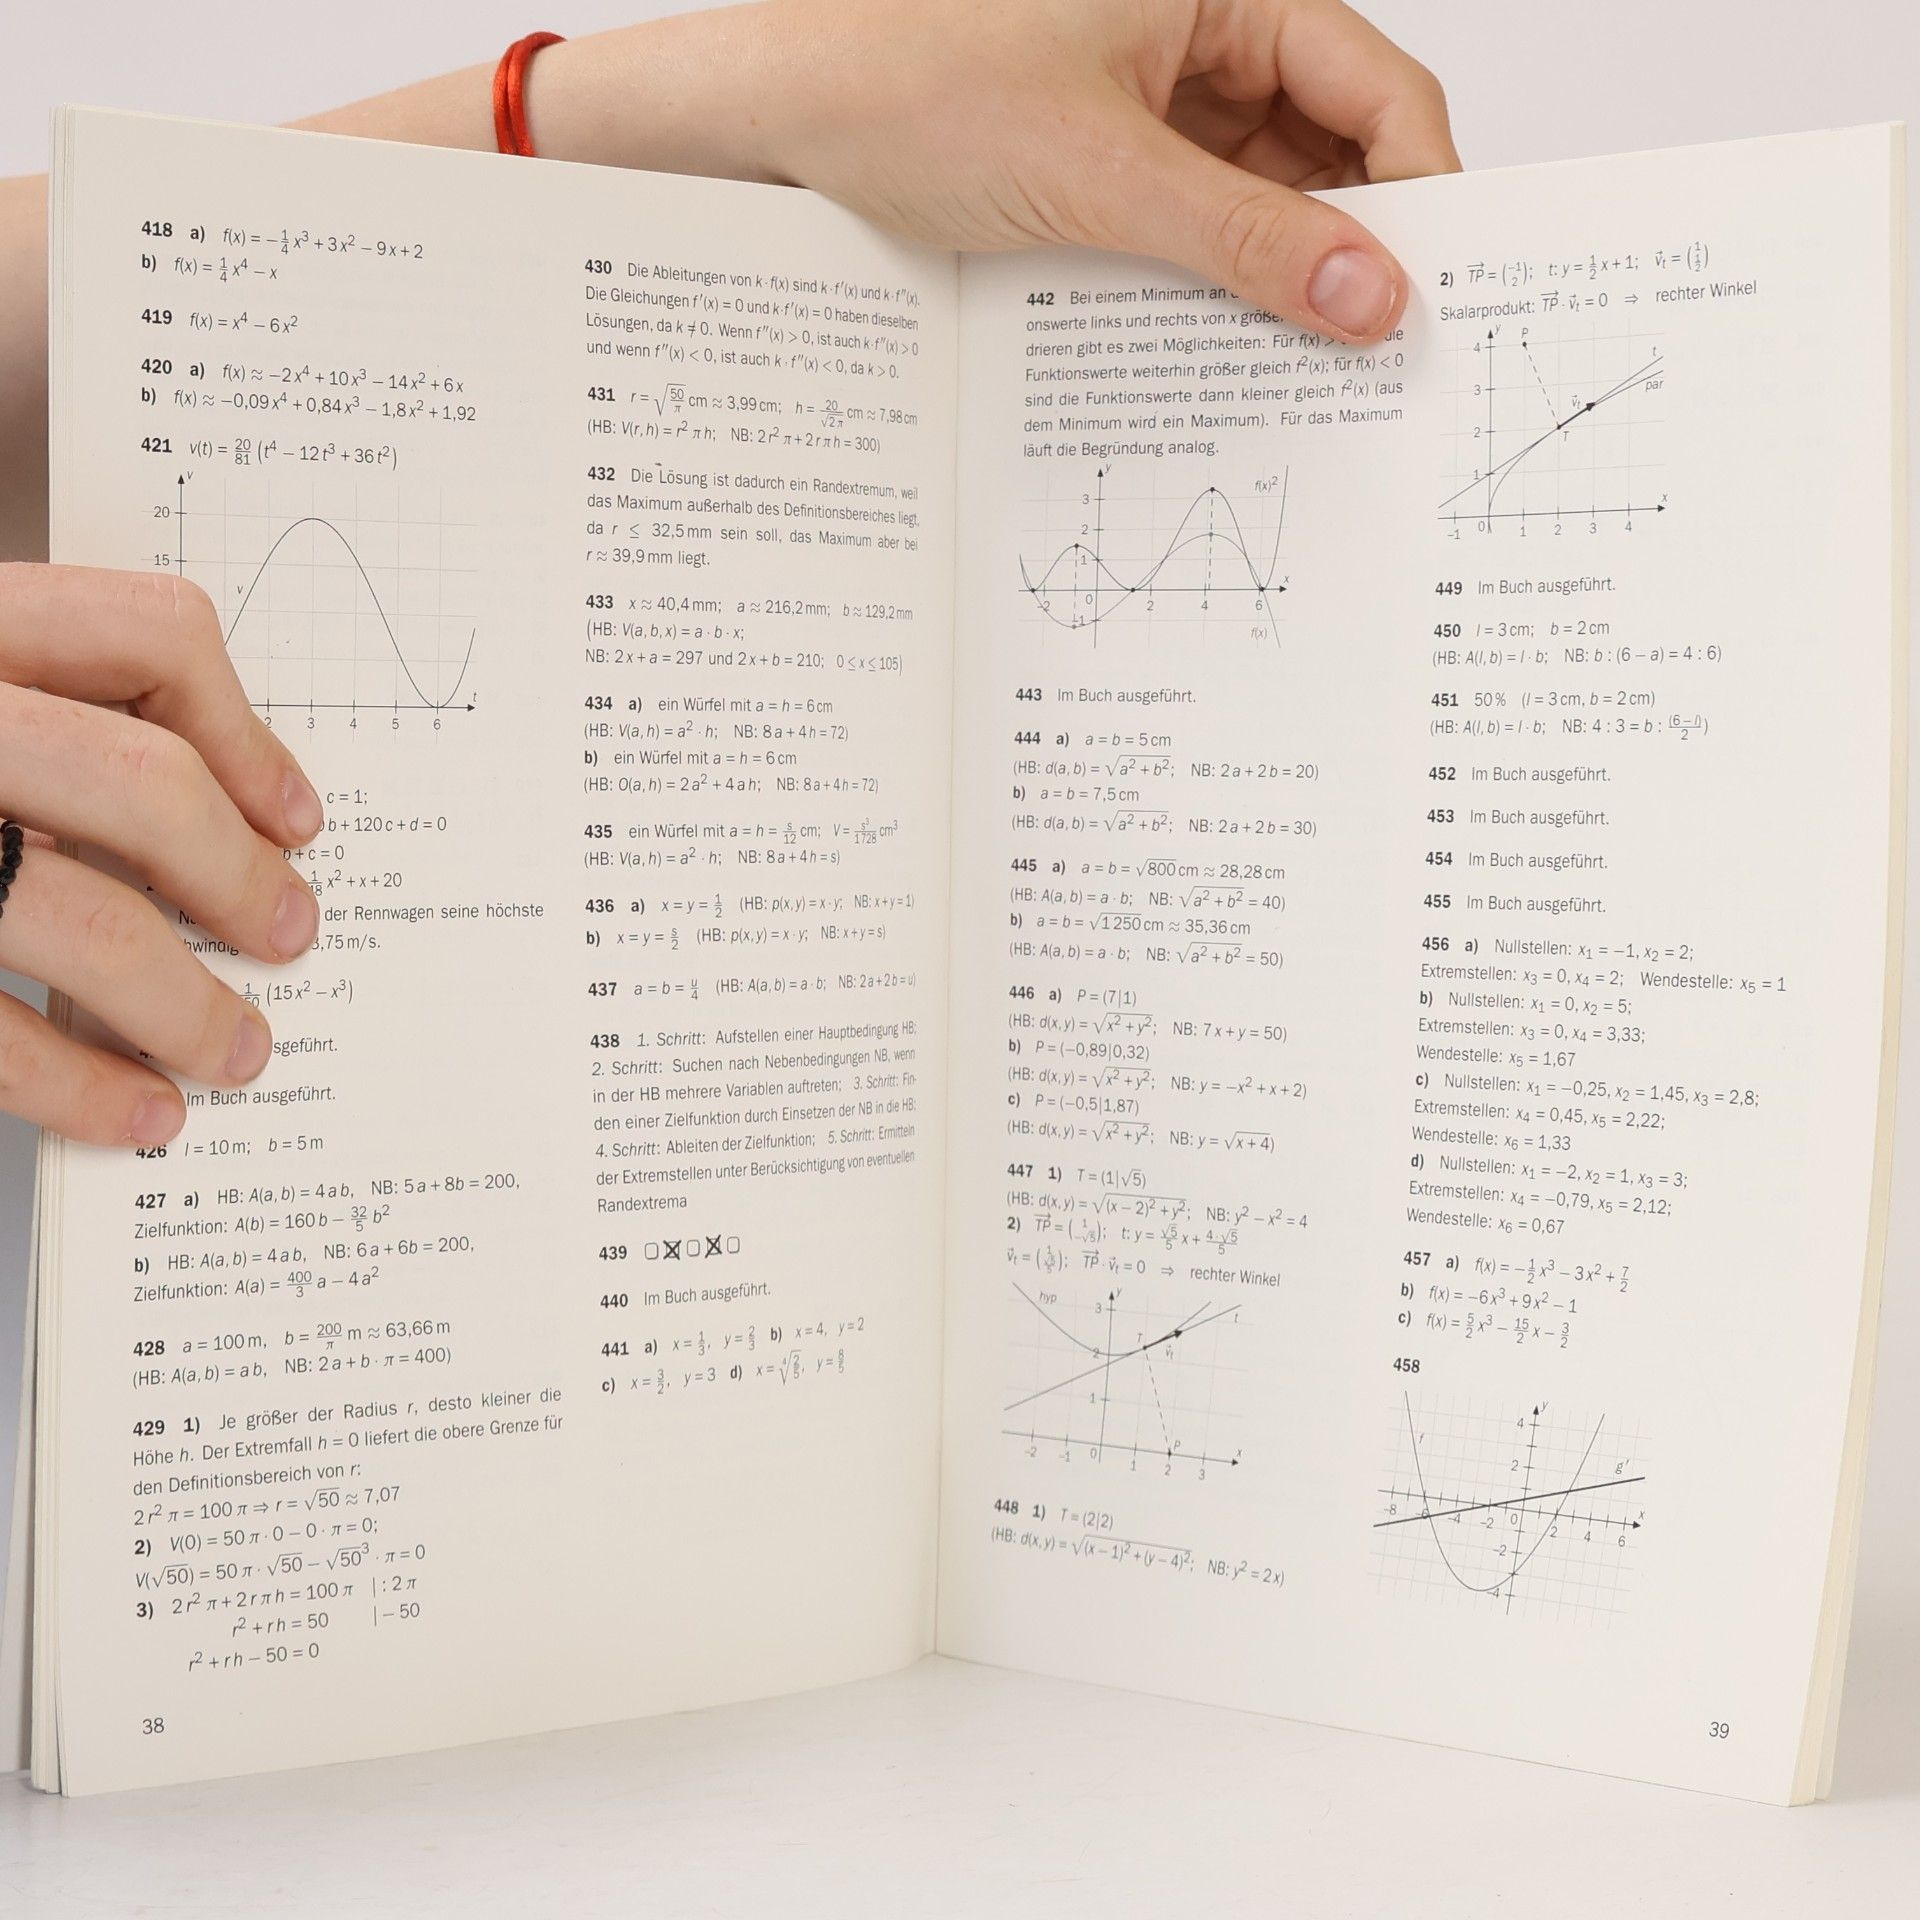 418 a) f(x) = −1/4 x³ + 3x² − 9x + 2
b) f(x) = 1/4 x⁴ − x
419 f(x) = x⁴ − 6x²
420 a) f(x) ≈ −2x⁴ + 10x³ − 14x² + 6x
b) f(x) ≈ −0,09x⁴ + 0,84x³ − 1,8x² + 1,92
421 v(t) = 20/81 (t⁴ − 12t³ + 36t²)
v
20
15
v
2 3 4 5 6 t
c = 1;
b + 120c + d = 0
b + c = 0
x² + x + 20
der Rennwagen seine höchste
3,75 m/s.
(15x² − x³)
sgeführt.
Im Buch ausgeführt.
426 l = 10 m; b = 5 m
427 a) HB: A(a, b) = 4ab, NB: 5a + 8b = 200,
Zielfunktion: A(b) = 160b − 32/5 b²
b) HB: A(a, b) = 4ab, NB: 6a + 6b = 200,
Zielfunktion: A(a) = 400/3 a − 4a²
428 a = 100 m, b = 200/π m ≈ 63,66 m
(HB: A(a, b) = ab, NB: 2a + b · π = 400)
429 1) Je größer der Radius r, desto kleiner die
Höhe h. Der Extremfall h = 0 liefert die obere Grenze für
den Definitionsbereich von r:
2r²π = 100π ⇒ r = √50 ≈ 7,07
2) V(0) = 50π · 0 − 0 · π = 0;
V(√50) = 50π · √50 − √50³ · π = 0
3) 2r²π + 2rπh = 100π | : 2π
r² + rh = 50 | − 50
r² + rh − 50 = 0
38
430 Die Ableitungen von k · f(x) sind k · f′(x) und k · f″(x).
Die Gleichungen f′(x) = 0 und k · f′(x) = 0 haben dieselben
Lösungen, da k ≠ 0. Wenn f″(x) > 0, ist auch k · f″(x) > 0
und wenn f″(x) < 0, ist auch k · f″(x) < 0, da k > 0.
431 r = √(50/π) cm ≈ 3,99 cm; h = 20/√2π cm ≈ 7,98 cm
(HB: V(r, h) = r²πh; NB: 2r²π + 2rπh = 300)
432 Die Lösung ist dadurch ein Randextremum, weil
das Maximum außerhalb des Definitionsbereiches liegt,
da r ≤ 32,5 mm sein soll, das Maximum aber bei
r ≈ 39,9 mm liegt.
433 x ≈ 40,4 mm; a ≈ 216,2 mm; b ≈ 129,2 mm
(HB: V(a, b, x) = a · b · x;
NB: 2x + a = 297 und 2x + b = 210; 0 ≤ x ≤ 105)
434 a) ein Würfel mit a = h = 6 cm
(HB: V(a, h) = a² · h; NB: 8a + 4h = 72)
b) ein Würfel mit a = h = 6 cm
(HB: O(a, h) = 2a² + 4ah; NB: 8a + 4h = 72)
435 ein Würfel mit a = h = s/12 cm; V = s³/1728 cm³
(HB: V(a, h) = a² · h; NB: 8a + 4h = s)
436 a) x = y = 1/2 (HB: p(x, y) = x · y; NB: x + y = 1)
b) x = y = s/2 (HB: p(x, y) = x · y; NB: x + y = s)
437 a = b = u/4 (HB: A(a, b) = a · b; NB: 2a + 2b = u)
438 1. Schritt: Aufstellen einer Hauptbedingung HB;
2. Schritt: Suchen nach Nebenbedingungen NB, wenn
in der HB mehrere Variablen auftreten; 3. Schritt: Fin-
den einer Zielfunktion durch Einsetzen der NB in die HB;
4. Schritt: Ableiten der Zielfunktion; 5. Schritt: Ermitteln
der Extremstellen unter Berücksichtigung von eventuellen
Randextrema
439 ☐☒☐☒☐
440 Im Buch ausgeführt.
441 a) x = 1/3, y = 2/3 b) x = 4, y = 2
c) x = 3/2, y = 3 d) x = ⁴√(2/5), y = 8/5
442 Bei einem Minimum an
onswerte links und rechts von x größe
drieren gibt es zwei Möglichkeiten: Für f(x) > die
Funktionswerte weiterhin größer gleich f²(x); für f(x) < 0
sind die Funktionswerte dann kleiner gleich f²(x) (aus
dem Minimum wird ein Maximum). Für das Maximum
läuft die Begründung analog.
y
f(x)²
3
2
1
−2 0 2 4 6 x
−1
f(x)
443 Im Buch ausgeführt.
444 a) a = b = 5 cm
(HB: d(a, b) = √(a² + b²); NB: 2a + 2b = 20)
b) a = b = 7,5 cm
(HB: d(a, b) = √(a² + b²); NB: 2a + 2b = 30)
445 a) a = b = √800 cm ≈ 28,28 cm
(HB: A(a, b) = a · b; NB: √(a² + b²) = 40)
b) a = b = √1 250 cm ≈ 35,36 cm
(HB: A(a, b) = a · b; NB: √(a² + b²) = 50)
446 a) P = (7|1)
(HB: d(x, y) = √(x² + y²); NB: 7x + y = 50)
b) P = (−0,89|0,32)
(HB: d(x, y) = √(x² + y²); NB: y = −x² + x + 2)
c) P = (−0,5|1,87)
(HB: d(x, y) = √(x² + y²); NB: y = √(x + 4))
447 1) T = (1|√5)
(HB: d(x, y) = √((x − 2)² + y²); NB: y² − x² = 4
2) TP⃗ = (1 / −√5); t: y = √5/5 x + 4·√5/5
v⃗ₜ = (1 / √5/5); TP⃗ · v⃗ₜ = 0 ⇒ rechter Winkel
hyp
y
3
t
T
v⃗ₜ
2
1
P
−2 −1 0 1 2 3 x
448 1) T = (2|2)
(HB: d(x, y) = √((x − 1)² + (y − 4)²); NB: y² = 2x)
2) TP⃗ = (−1 / 2); t: y = 1/2 x + 1; v⃗ₜ = (1 / 1/2)
Skalarprodukt: TP⃗ · v⃗ₜ = 0 ⇒ rechter Winkel
y
P
4
t
par
3
v⃗ₜ
2
T
1
−1 0 1 2 3 4 x
449 Im Buch ausgeführt.
450 l = 3 cm; b = 2 cm
(HB: A(l, b) = l · b; NB: b : (6 − a) = 4 : 6)
451 50 % (l = 3 cm, b = 2 cm)
(HB: A(l, b) = l · b; NB: 4 : 3 = b : (6 − l)/2)
452 Im Buch ausgeführt.
453 Im Buch ausgeführt.
454 Im Buch ausgeführt.
455 Im Buch ausgeführt.
456 a) Nullstellen: x₁ = −1, x₂ = 2;
Extremstellen: x₃ = 0, x₄ = 2; Wendestelle: x₅ = 1
b) Nullstellen: x₁ = 0, x₂ = 5;
Extremstellen: x₃ = 0, x₄ = 3,33;
Wendestelle: x₅ = 1,67
c) Nullstellen: x₁ = −0,25, x₂ = 1,45, x₃ = 2,8;
Extremstellen: x₄ = 0,45, x₅ = 2,22;
Wendestelle: x₆ = 1,33
d) Nullstellen: x₁ = −2, x₂ = 1, x₃ = 3;
Extremstellen: x₄ = −0,79, x₅ = 2,12;
Wendestelle: x₆ = 0,67
457 a) f(x) = −1/2 x³ − 3x² + 7/2
b) f(x) = −6x³ + 9x² − 1
c) f(x) = 5/2 x³ − 15/2 x − 3/2
458
y
4
f
2
g′
−8 −6 −4 −2 0 2 4 6 x
−2
−4
39